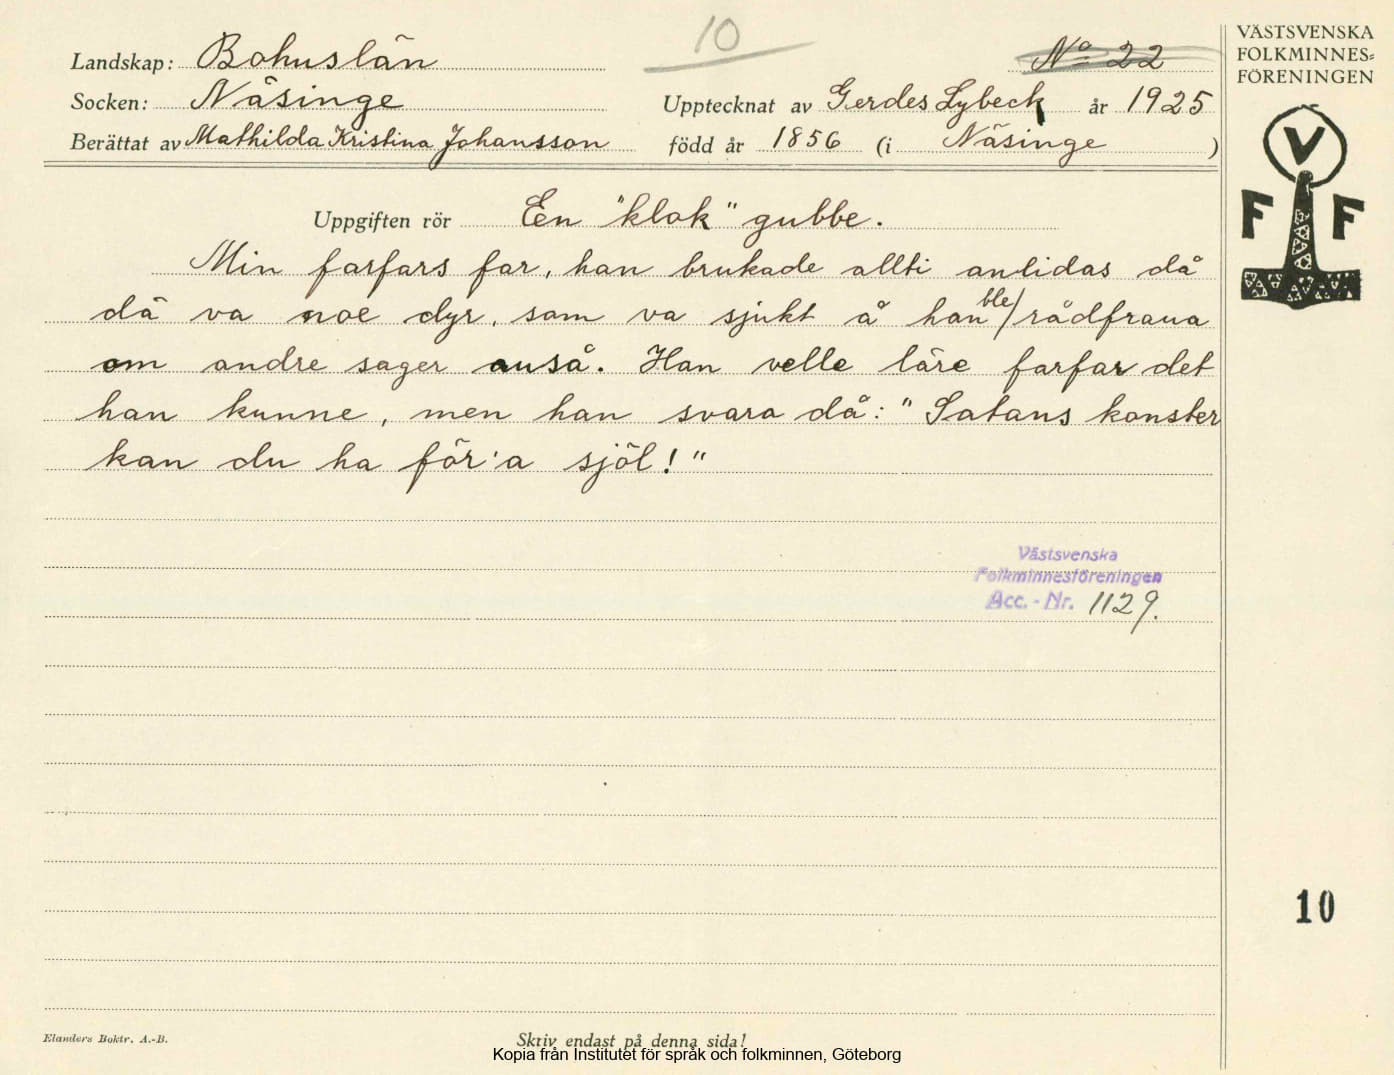 10
VÄSTSVENSKA
FOLKMINNES=
FÖRENINGEN
Landskap: Bohuslän
No 22
Socken: Näsinge
Upptecknat av Gerdes Lybeck år 1925
Berättat av Mathilda Kristina Johansson
född år 1856 (i Näsinge )
V
F F
Uppgiften rör En "klok" gubbe.
Min farfars far, han brukade allti anlidas då
dä va noe dyr, som va sjukt å han ble/rådfraua
om andre sager auså. Han velle läre farfar det
han kunne, men han svara då: "Satans konster
kan du ha för'a sjöl!"
Västsvenska
Folkminnesföreningen
Acc. - Nr. 1129.
10
Elanders Boktr. A.-B.
Skriv endast på denna sida!
Kopia från Institutet för språk och folkminnen, Göteborg